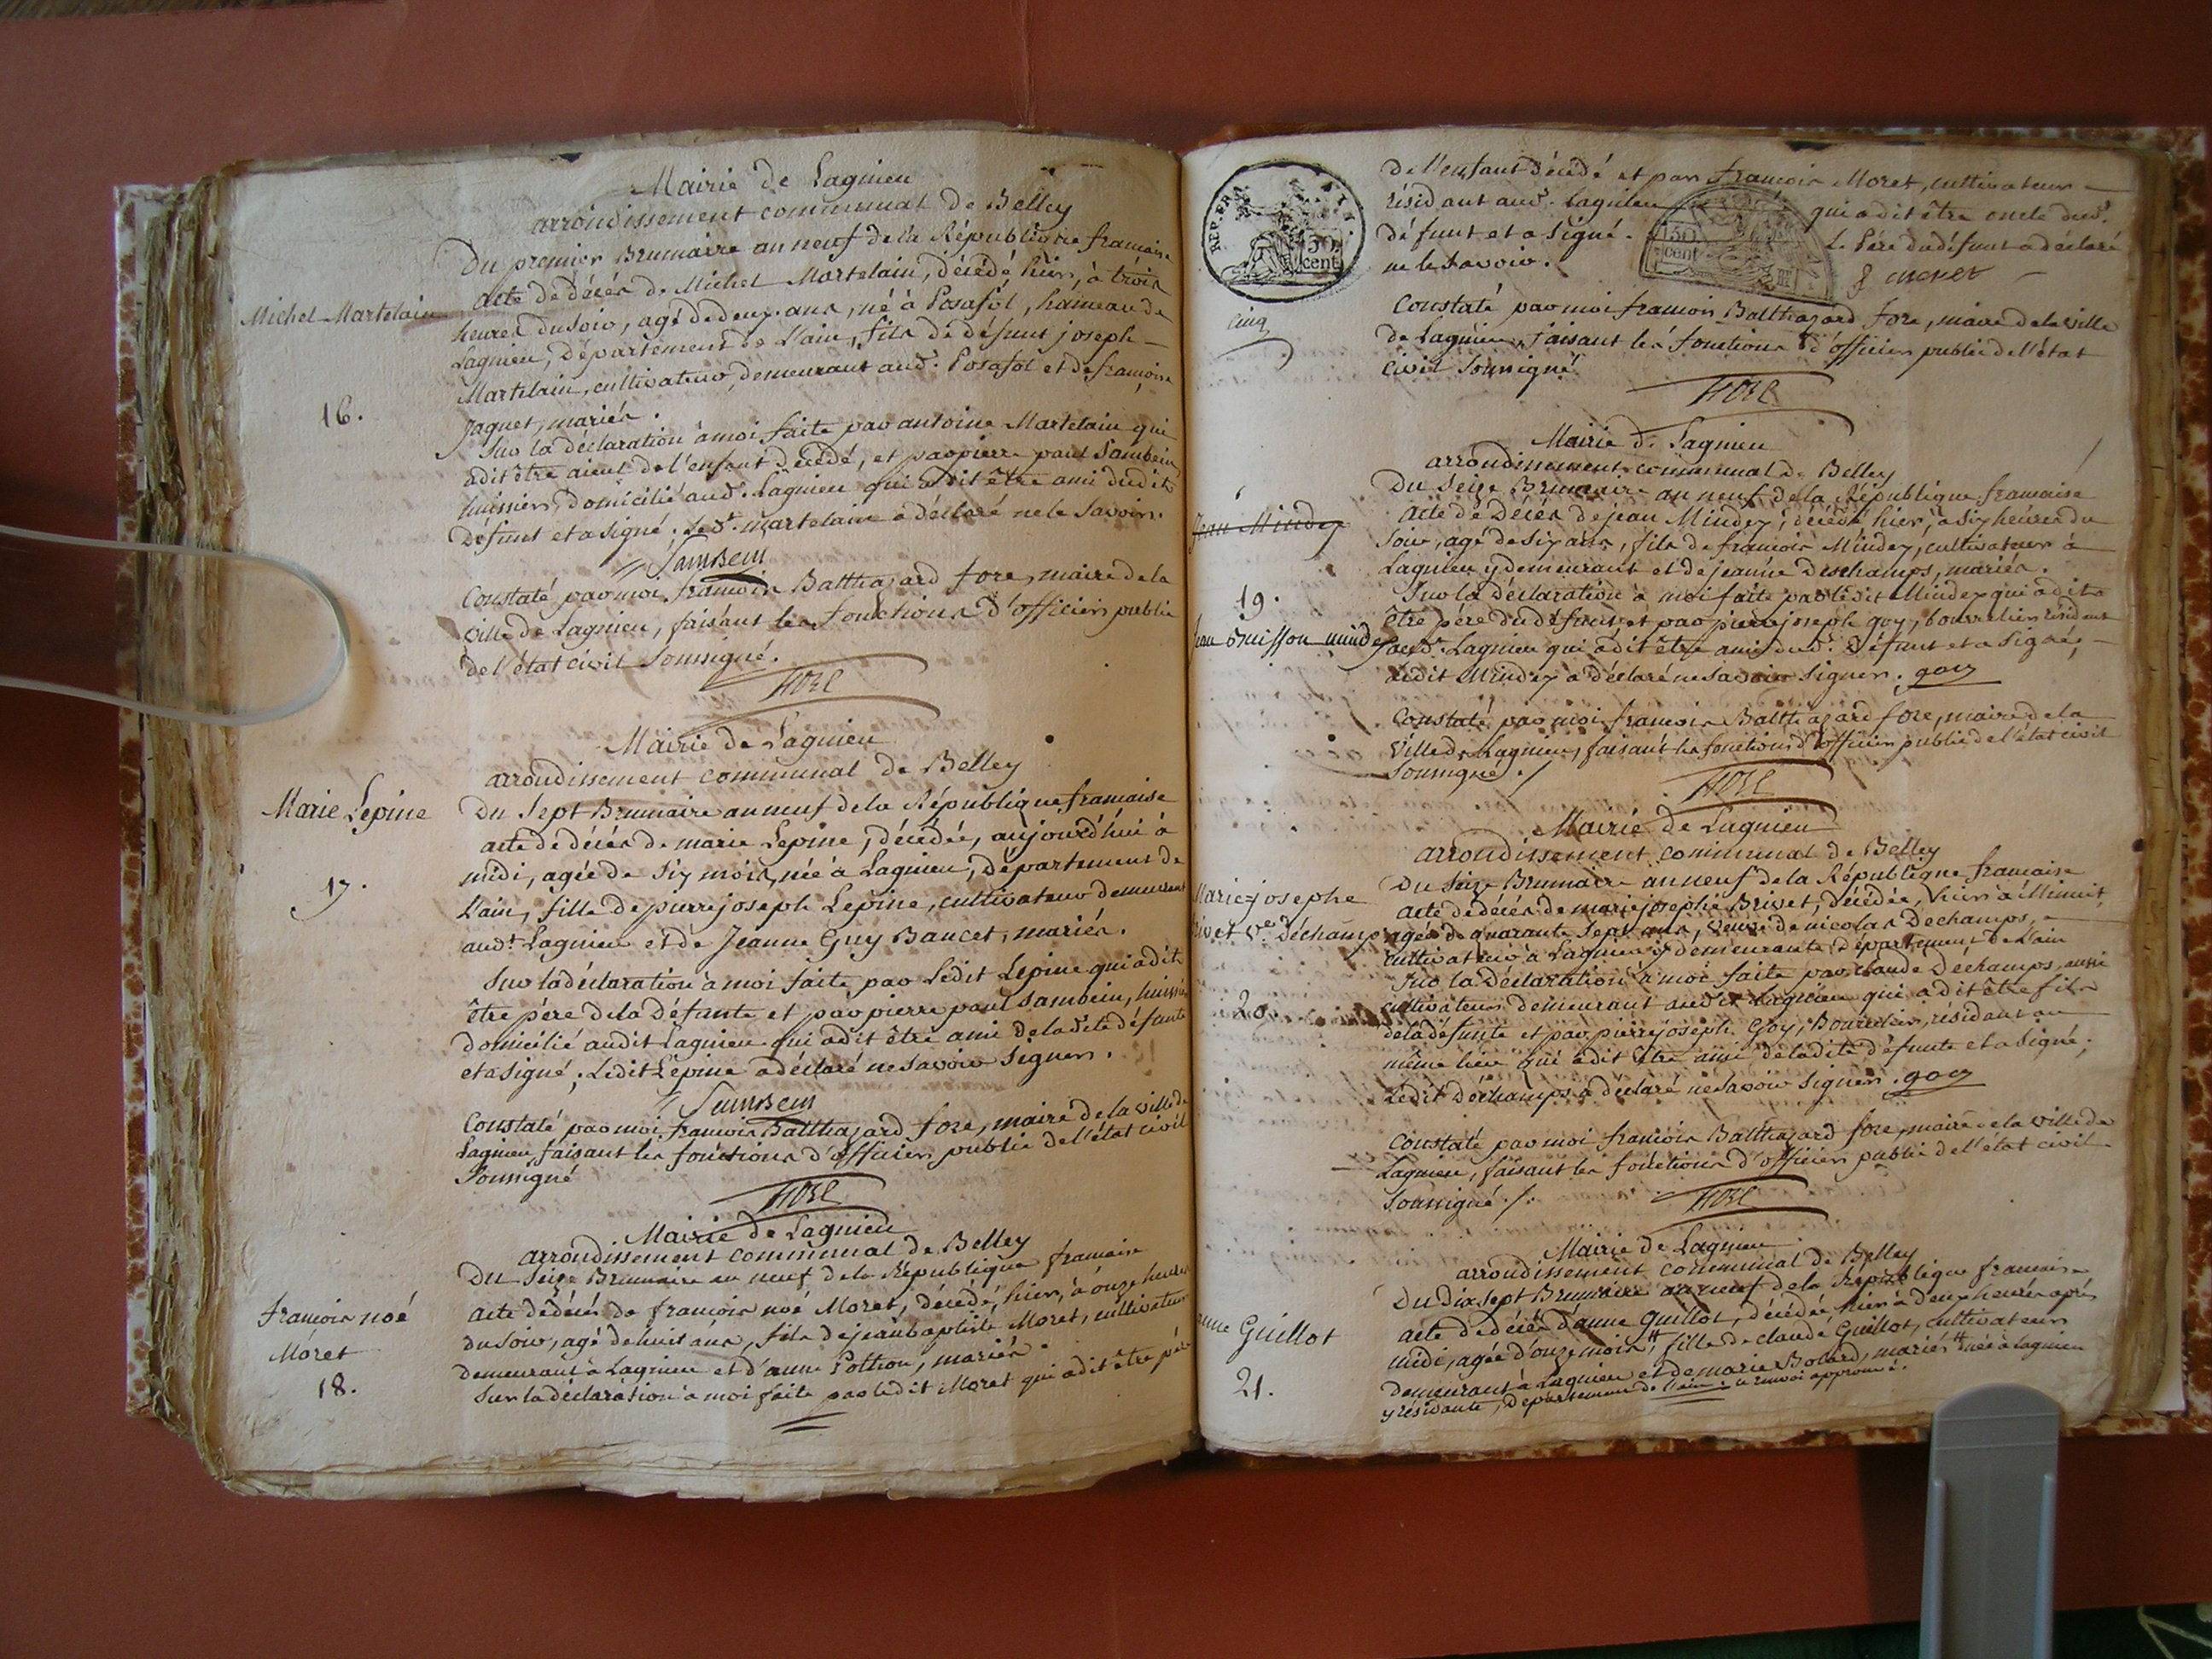 Mairie de Lagnieu
arrondissement communal de Belley
Du premier Brumaire an neuf de la République française
Michel Martelain
acte de décés de Michel Martelain, décédé, hier, à trois
heures du soir, agé de deux ans, né à Posafol, hameau de
Lagnieu, Département de L'ain, fils de défunt joseph
Martelain, cultivateur, demeurant aud. Posafol et de françoise
16.
Jaquet, mariés.
Sur la déclaration à moi faite par antoine Martelain qui
a dit être aieul de l'enfant décédé, et par pierre paul Sambein
huissier, domicilié aud. Lagnieu qui a dit être ami dudit
défunt et a signé. led.t martelain a déclaré ne le savoir.
Sambein
Constaté par moi françois Balthazard fore, maire de la
ville de Lagnieu, faisant les fonctions d'officier public
de l'état civil soussigné.
fore
Mairie de Lagnieu
arrondissement communal de Belley
Marie Lepine
Du Sept Brumaire an neuf de la République française
acte de décés de marie Lepine, décédée, aujourd'hui à
midi, agée de six mois, née à Lagnieu, département de
17.
L'ain, fille de pierre joseph Lepine, cultivateur demeurant
aud.t Lagnieu et de Jeanne Guy Baucet, mariés.
Sur la déclaration à moi faite par Ledit Lepine qui a dit
être pére de la défunte et par pierre paul Sambein, huissier
domicilié audit Lagnieu qui a dit être ami de lad.te défunte
et a signé; Ledit Lepine a déclaré ne savoir signer.
Sambein
Constaté par moi françois Balthazard fore, maire de la ville de
Lagnieu, faisant les fonctions d'officier public de l'état civil
soussigné
fore
Mairie de Lagnieu
arrondissement communal de Belley
Du Seize Brumaire an neuf de la République francaise
françois noé
Moret
acte de décés de françois noé Moret, décédé, hier, à onze heures
du soir, agé de huit ans, fils de jean baptiste Moret, cultivateur
demeurant à Lagnieu et d'anne Pottion, mariés.
18.
Sur la déclaration à moi faite par ledit Moret qui a dit être pére
REP. FRA.
50
cent
de l'enfant décédé et par françois Moret, cultivateur
résidant aud. Lagnieu qui a dit être oncle dud.
défunt et a signé. Le Pére du défunt a déclaré
ne le savoir.
f moret
cinq
Constaté par moi françois Balthazard fore, maire de la ville
de Lagnieu, faisant les fonctions d'officier public de l'état
civil soussigné
fore
Mairie de Lagnieu
arrondissement communal de Belley
Du Seize Brumaire an neuf de la République francaise
Jean Mindex
acte de décés de jean Mindex, décédé hier, à six heures du
soir, agé de six ans, fils de françois Mindex, cultivateur à
Lagnieu y demeurant et de jeanne Deschamps, mariés.
19.
Sur la déclaration à moi faite par ledit Mindex qui a dit
être pére du défunt et par pierre joseph goy, bourrelier résidant
Jean buisson mindex
aud. Lagnieu qui a dit être ami dud. défunt et a signé;
ledit Mindex a déclaré ne savoir signer. goy
Constaté par moi françois Balthazard fore, maire de la
ville de Lagnieu, faisant les fonctions d'officier public de l'état civil
soussigné./
fore
Mairie de Lagnieu
arrondissement communal de Belley
Du Seize Brumaire an neuf de la République francaise
Marie josephe
acte de décés de marie josephe Brivet, décédée, hier à Minuit,
rivet v.e Déchamps
agée de quarante Sept ans, veuve de nicolas Dechamps,
cultivateur à Lagnieu y demeurante, département de L'ain
Sur la déclaration à moi faite par claude Déchamps, aussi
20.
cultivateur demeurant audit Lagnieu qui a dit être fils
de la défunte et par pierre joseph Goy, Bourrelier, résidant au
même lieu qui a dit être ami de ladite défunte et a signé;
Ledit Déchamps a déclaré ne savoir signer. goy
Constaté par moi françois Balthazard fore, maire de la ville de
Lagnieu, faisant les fonctions d'officier public de l'état civil
soussigné./.
fore
Mairie de Lagnieu
arrondissement communal de Belley
Du dix sept Brumaire an neuf de la République francaise
anne Guillot
acte de décés d'anne Guillot, décédée hier à deux heures aprés
midi, agée d'onze mois, # fille de claude Guillot, cultivateur
21.
demeurant à Lagnieu et de marie Bolard, mariés # née à Lagnieu
y résidante, département de l'ain. ce renvoi approuvé.